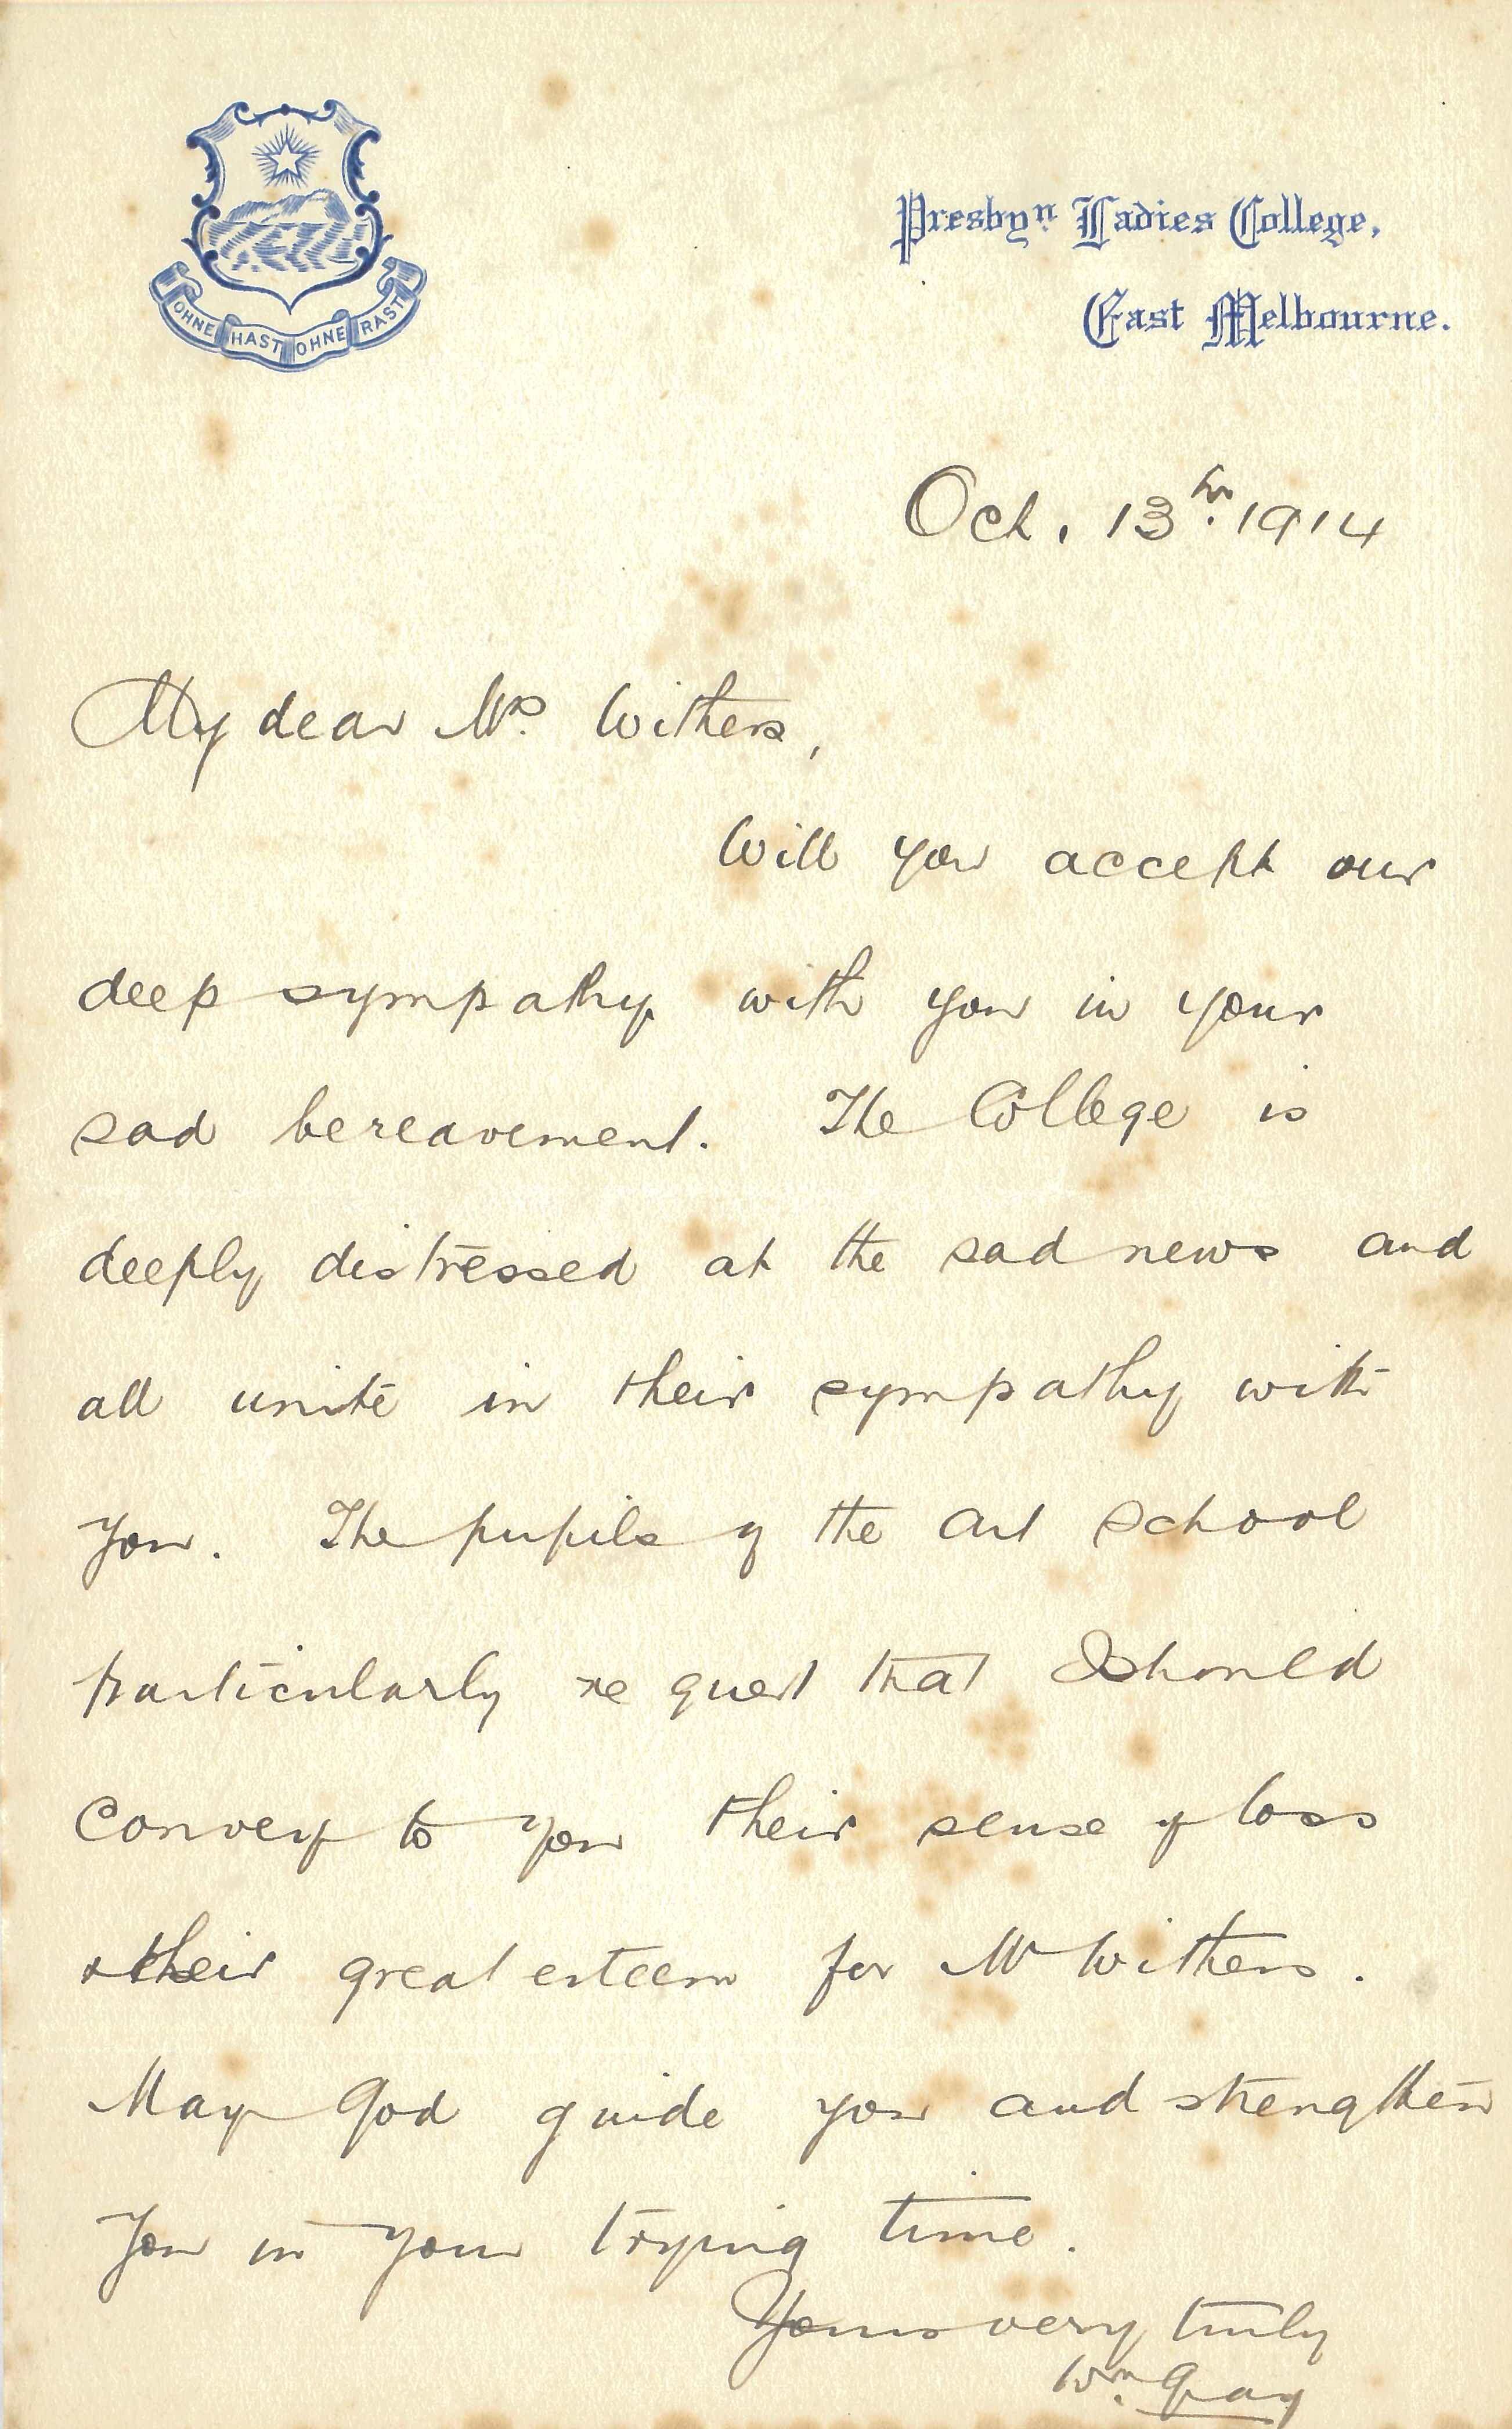 OHNE HAST OHNE RAST
Presbyn Ladies College,
East Melbourne.
Oct. 13th. 1914
My dear Mrs. Withers,
Will you accept our
deep sympathy with you in your
sad bereavement. The College is
deeply distressed at the sad news and
all unite in their sympathy with
you. The pupils of the Art School
particularly request that I should
convey to you their sense of loss
& their great esteem for Mr Withers.
May God guide you and strengthen
you in your trying time.
Yours very truly
Wm. Gray